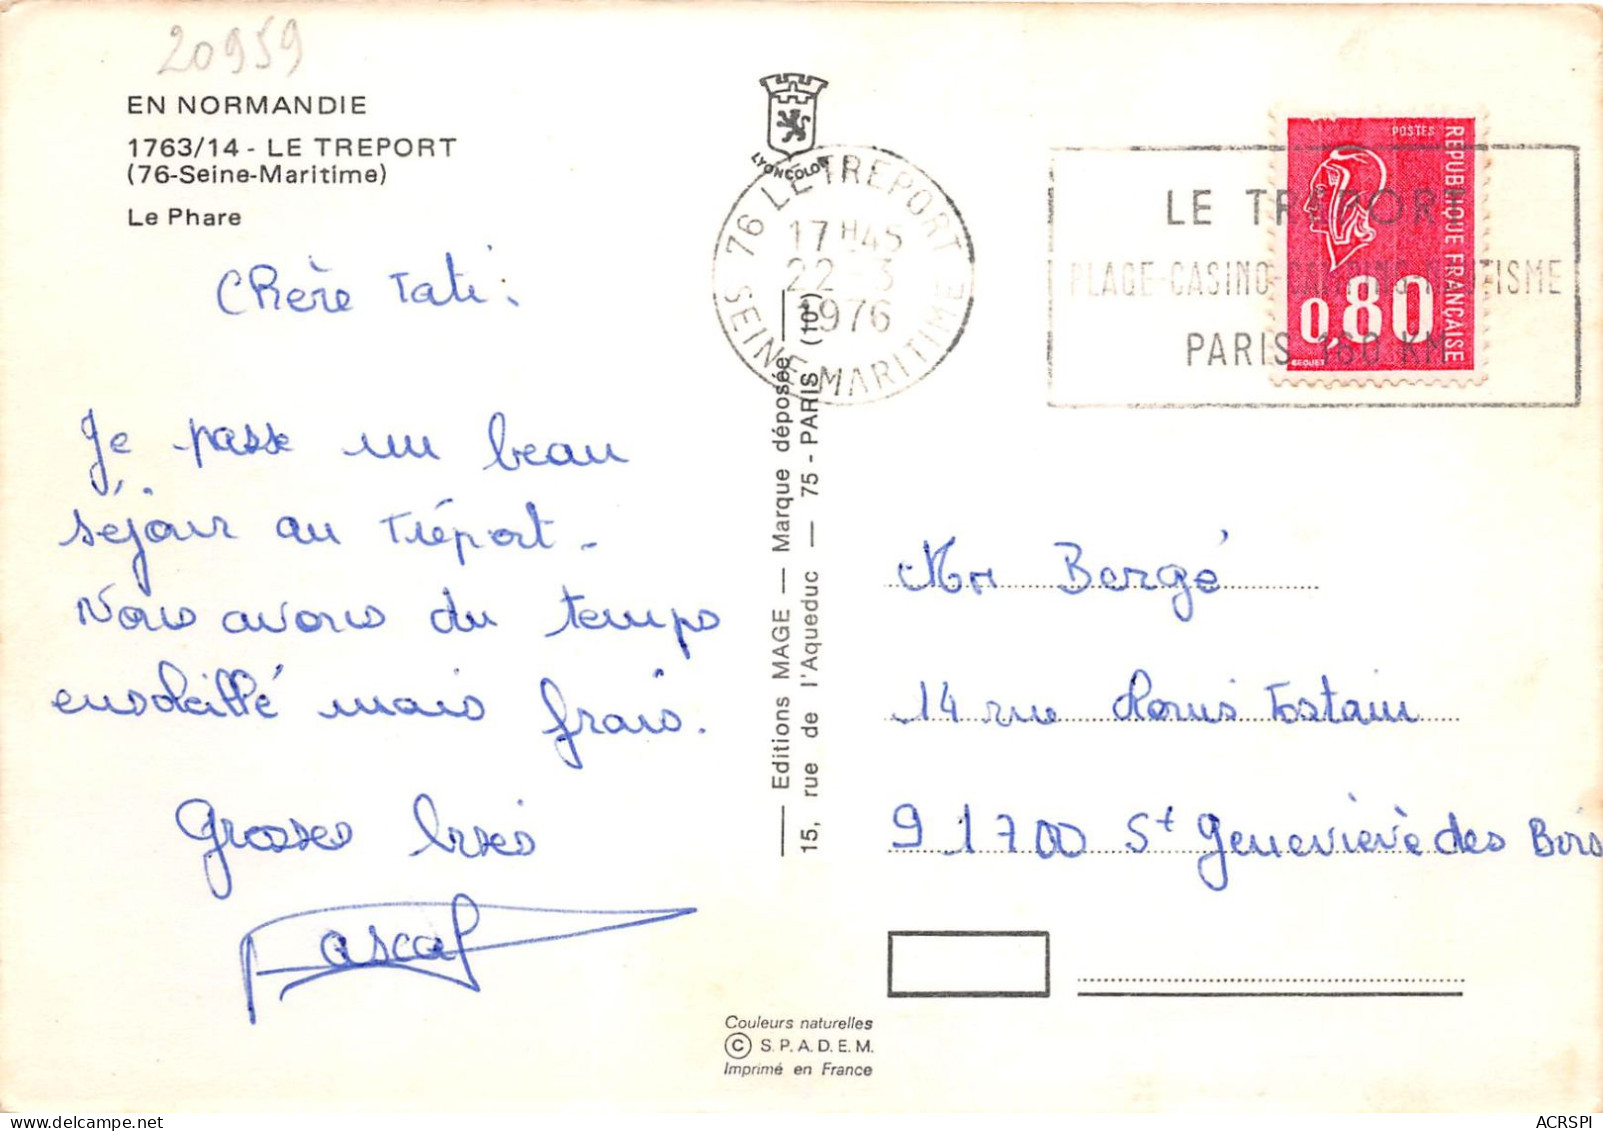 20959
EN NORMANDIE
1763/14 - LE TREPORT
(76-Seine-Maritime)
Le Phare
Chère Tati:
Je passe un beau
séjour au Tréport.
Nous avons du temps
ensoleillé mais frais.
Grosses bises
Pascal
LYONCOLOR
76 LE TREPORT
17H45
22-3
1976
SEINE-MARITIME
LE TREPORT
PLAGE-CASINO-CAMPING-NAUTISME
PARIS 160 KM
POSTES
REPUBLIQUE FRANÇAISE
0,80
BEQUET
Editions MAGE — Marque déposée
15, rue de l'Aqueduc — 75 - PARIS (10e)
Mr Bergé
14 rue Louis Tostain
91700 St Geneviève des Bois
Couleurs naturelles
© S.P.A.D.E.M.
Imprimé en France
ACRSPI